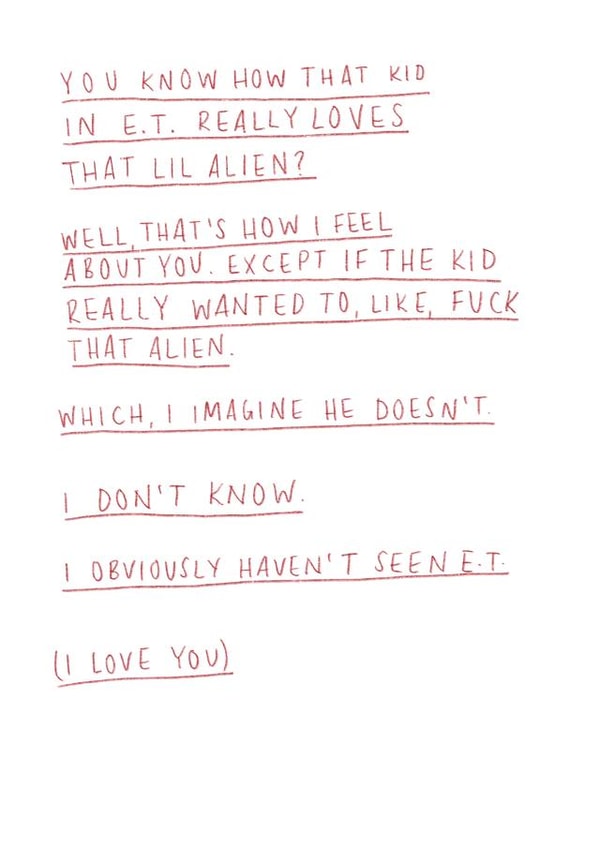 YOU KNOW HOW THAT KID
IN E.T. REALLY LOVES
THAT LIL ALIEN?
WELL, THAT'S HOW I FEEL
ABOUT YOU. EXCEPT IF THE KID
REALLY WANTED TO, LIKE, FUCK
THAT ALIEN.
WHICH, I IMAGINE HE DOESN'T.
I DON'T KNOW.
I OBVIOUSLY HAVEN'T SEEN E.T.
(I LOVE YOU)